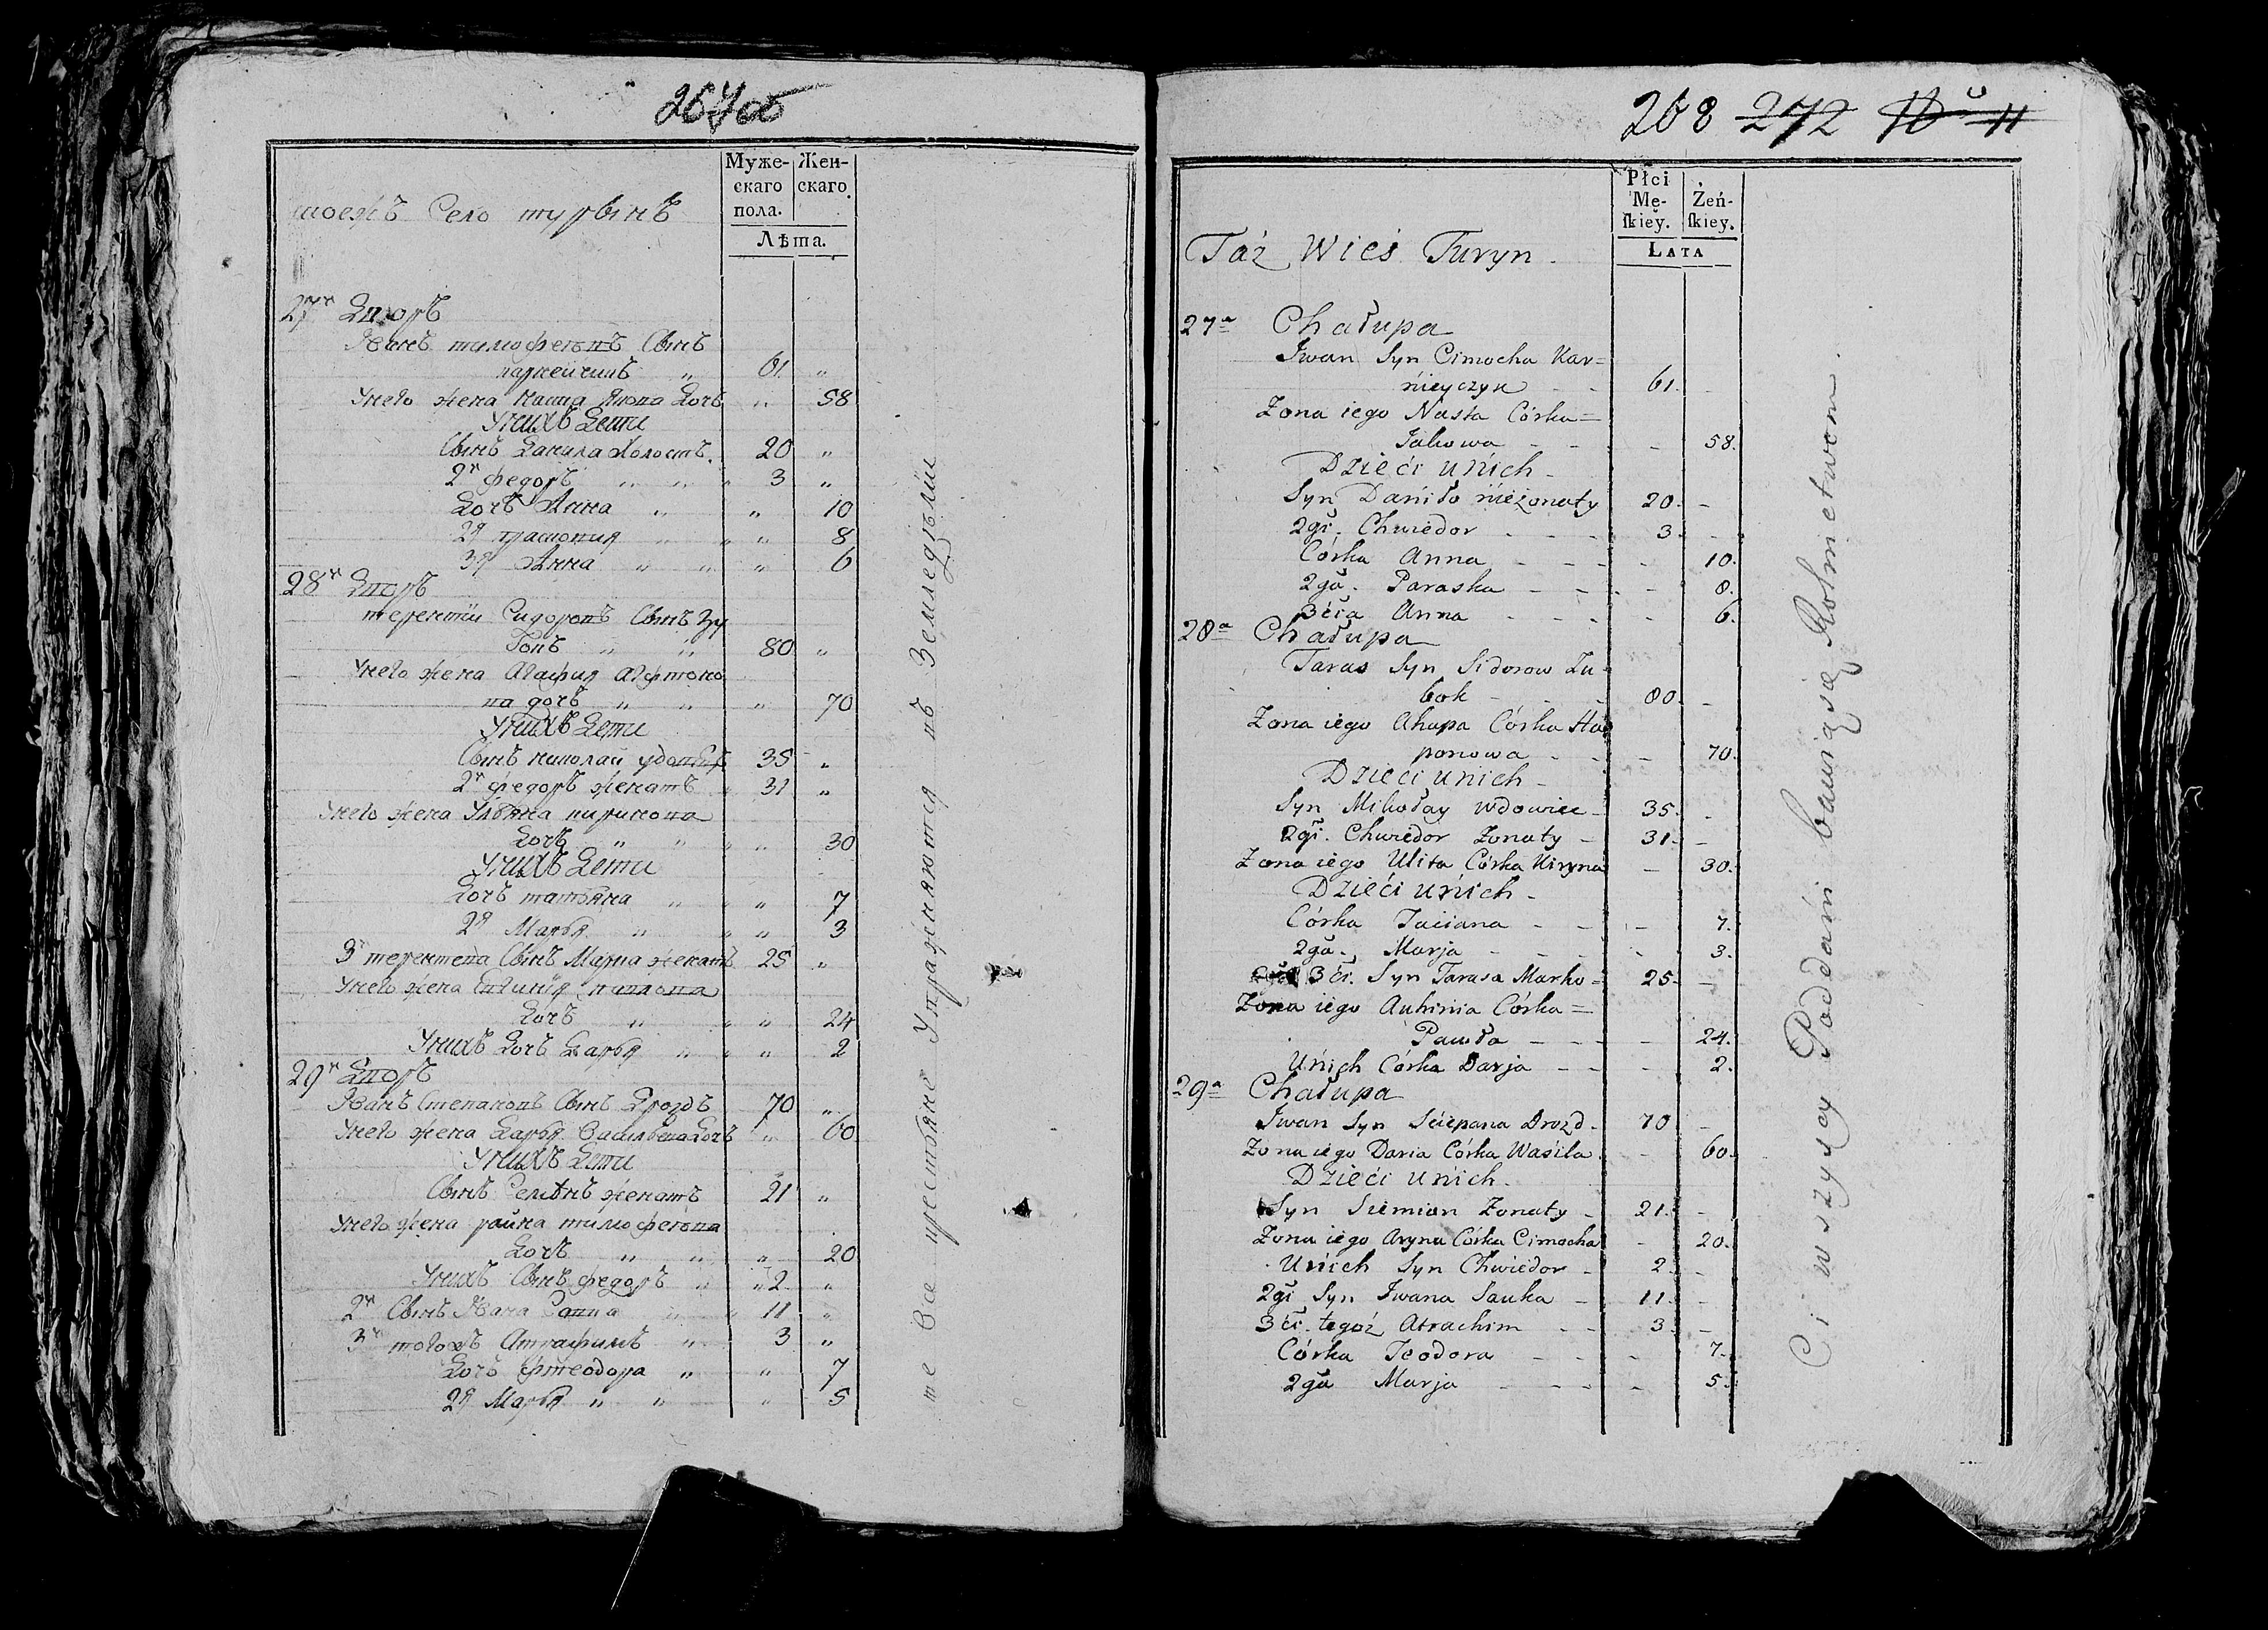 267об
Муже-
скаго
пола.
Жен-
скаго
Лѣта.
тоежъ Село турынъ
27й Дворъ
Иванъ тимофеевъ Сынъ
карнейчикъ " 61. "
Унего жена насиа якова Дочь " 58
Унихъ Дети
Сынъ Данила Холостъ. 20 "
2й федоръ " " 3 "
Дочь Анна " " 10
2я прасковия " " 8
3я Анна " " 6
28й Дворъ
терентій Сидоровъ Сынъ Зу
бокъ " 80 "
Унего жена Агафия
ва дочь " " 70
Унихъ Дети
Сынъ николай удовецъ 35 "
2й федоръ женатъ 31 "
Унего жена Ульяна кирикова
Дочь " " 30
Унихъ Дети
Дочь татьяна " " 7
2я Марья " " 3
3й терентева Сынъ Марка женатъ 25 "
Унего жена павлова
Дочь " " 24
Унихъ Дочь Дарья " " 2
29й Дворъ
Иванъ Степановъ Сынъ Дроздъ 70 "
Унего жена Дарья Васильева Дочь " 60
Унихъ Дети
Сынъ Семѣнъ женатъ 21 "
Унего жена райна тимофеева
Дочь " " 20
Унихъ Сынъ федоръ " 2 "
2й Сынъ Ивана Савка " 11 "
3й тогожъ Атрафимъ " 3 "
Дочь фтеодора " " 7
2я Марья " " 5
те Все крестьяне Упражняются въ Земледѣліи
268 272
Płci
Mę-
ſkiey.
Żeń-
ſkiey.
LATA
Táż Wieś Turyn.
27a Chałupa
Iwan Syn Cimocha Kar=
nieyczyk - - 61. -
Żona iego Nasta Córka=
Jakowa - - - 58.
Dzieći unich -
Syn Daniło nieżonaty 20. -
2gi. Chwiedor - - - 3. -
Córka Anna - - - - 10.
2ga. Paraska - - - - 8.
3cia Anna - - - - 6.
28a Chałupa
Taras Syn Sidorow Zu=
bok - - - 80. -
Żona iego Ahapa Córka Ha=
ponowa - - - 70.
Dzieći unich -
Syn Mikołay Wdowiec - 35. -
2gi. Chwiedor Żonaty - 31. -
Żona iego Ulita Córka Kiryna - 30.
Dzieći unich -
Córka Taciana - - - 7.
2ga. Marja - - - - 3.
3ci. Syn Tarasa Marko - 25. -
Żona iego Auhinia Córka=
Pawła - - - 24.
Unich Córka Darja - - - 2.
29a Chałupa
Iwan Syn Sciepana Drozd - 70 -
Żona iego Daria Córka Wasila. - 60.
Dzieći unich.
Syn Siemion Żonaty - 21. -
Żona iego Aryna Córka Cimocha - 20.
Unich Syn Chwiedor - 2. -
2gi Syn Iwana Sauka - 11. -
3ci. tegoż Atrachim - - 3. -
Córka Teodora - - - 7.
2ga Marja - - - - 5.
Ci wszyscy Poddani bawią się Rolnictwem.